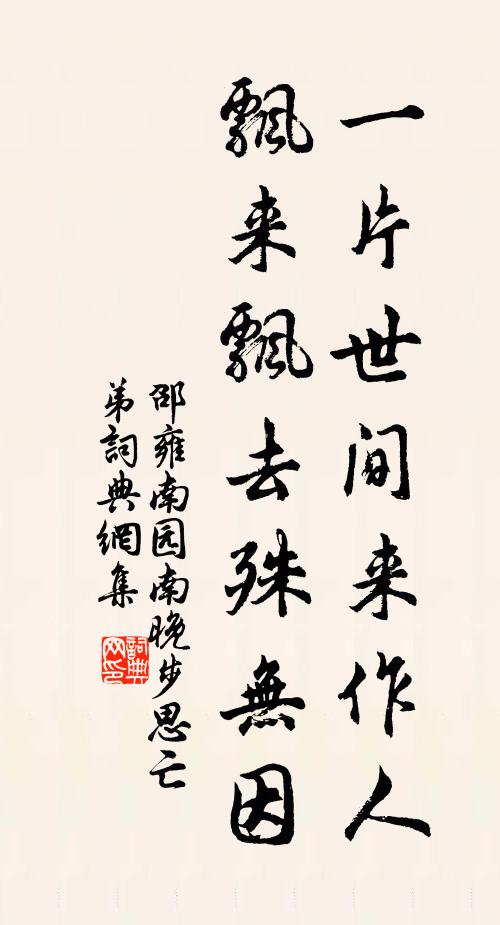 一片世间来作人
飘来飘去殊無因
邵雍南园南晚步思亡
弟詞典網集
詞典
网印